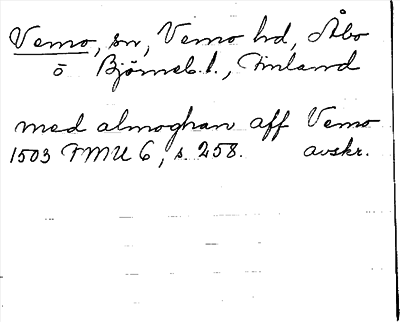 Vemo, sn, Vemo hd, Åbo
o Björneb. l., Finland
med almoghan aff Vemo
1503 FMU 6, s. 258. avskr.